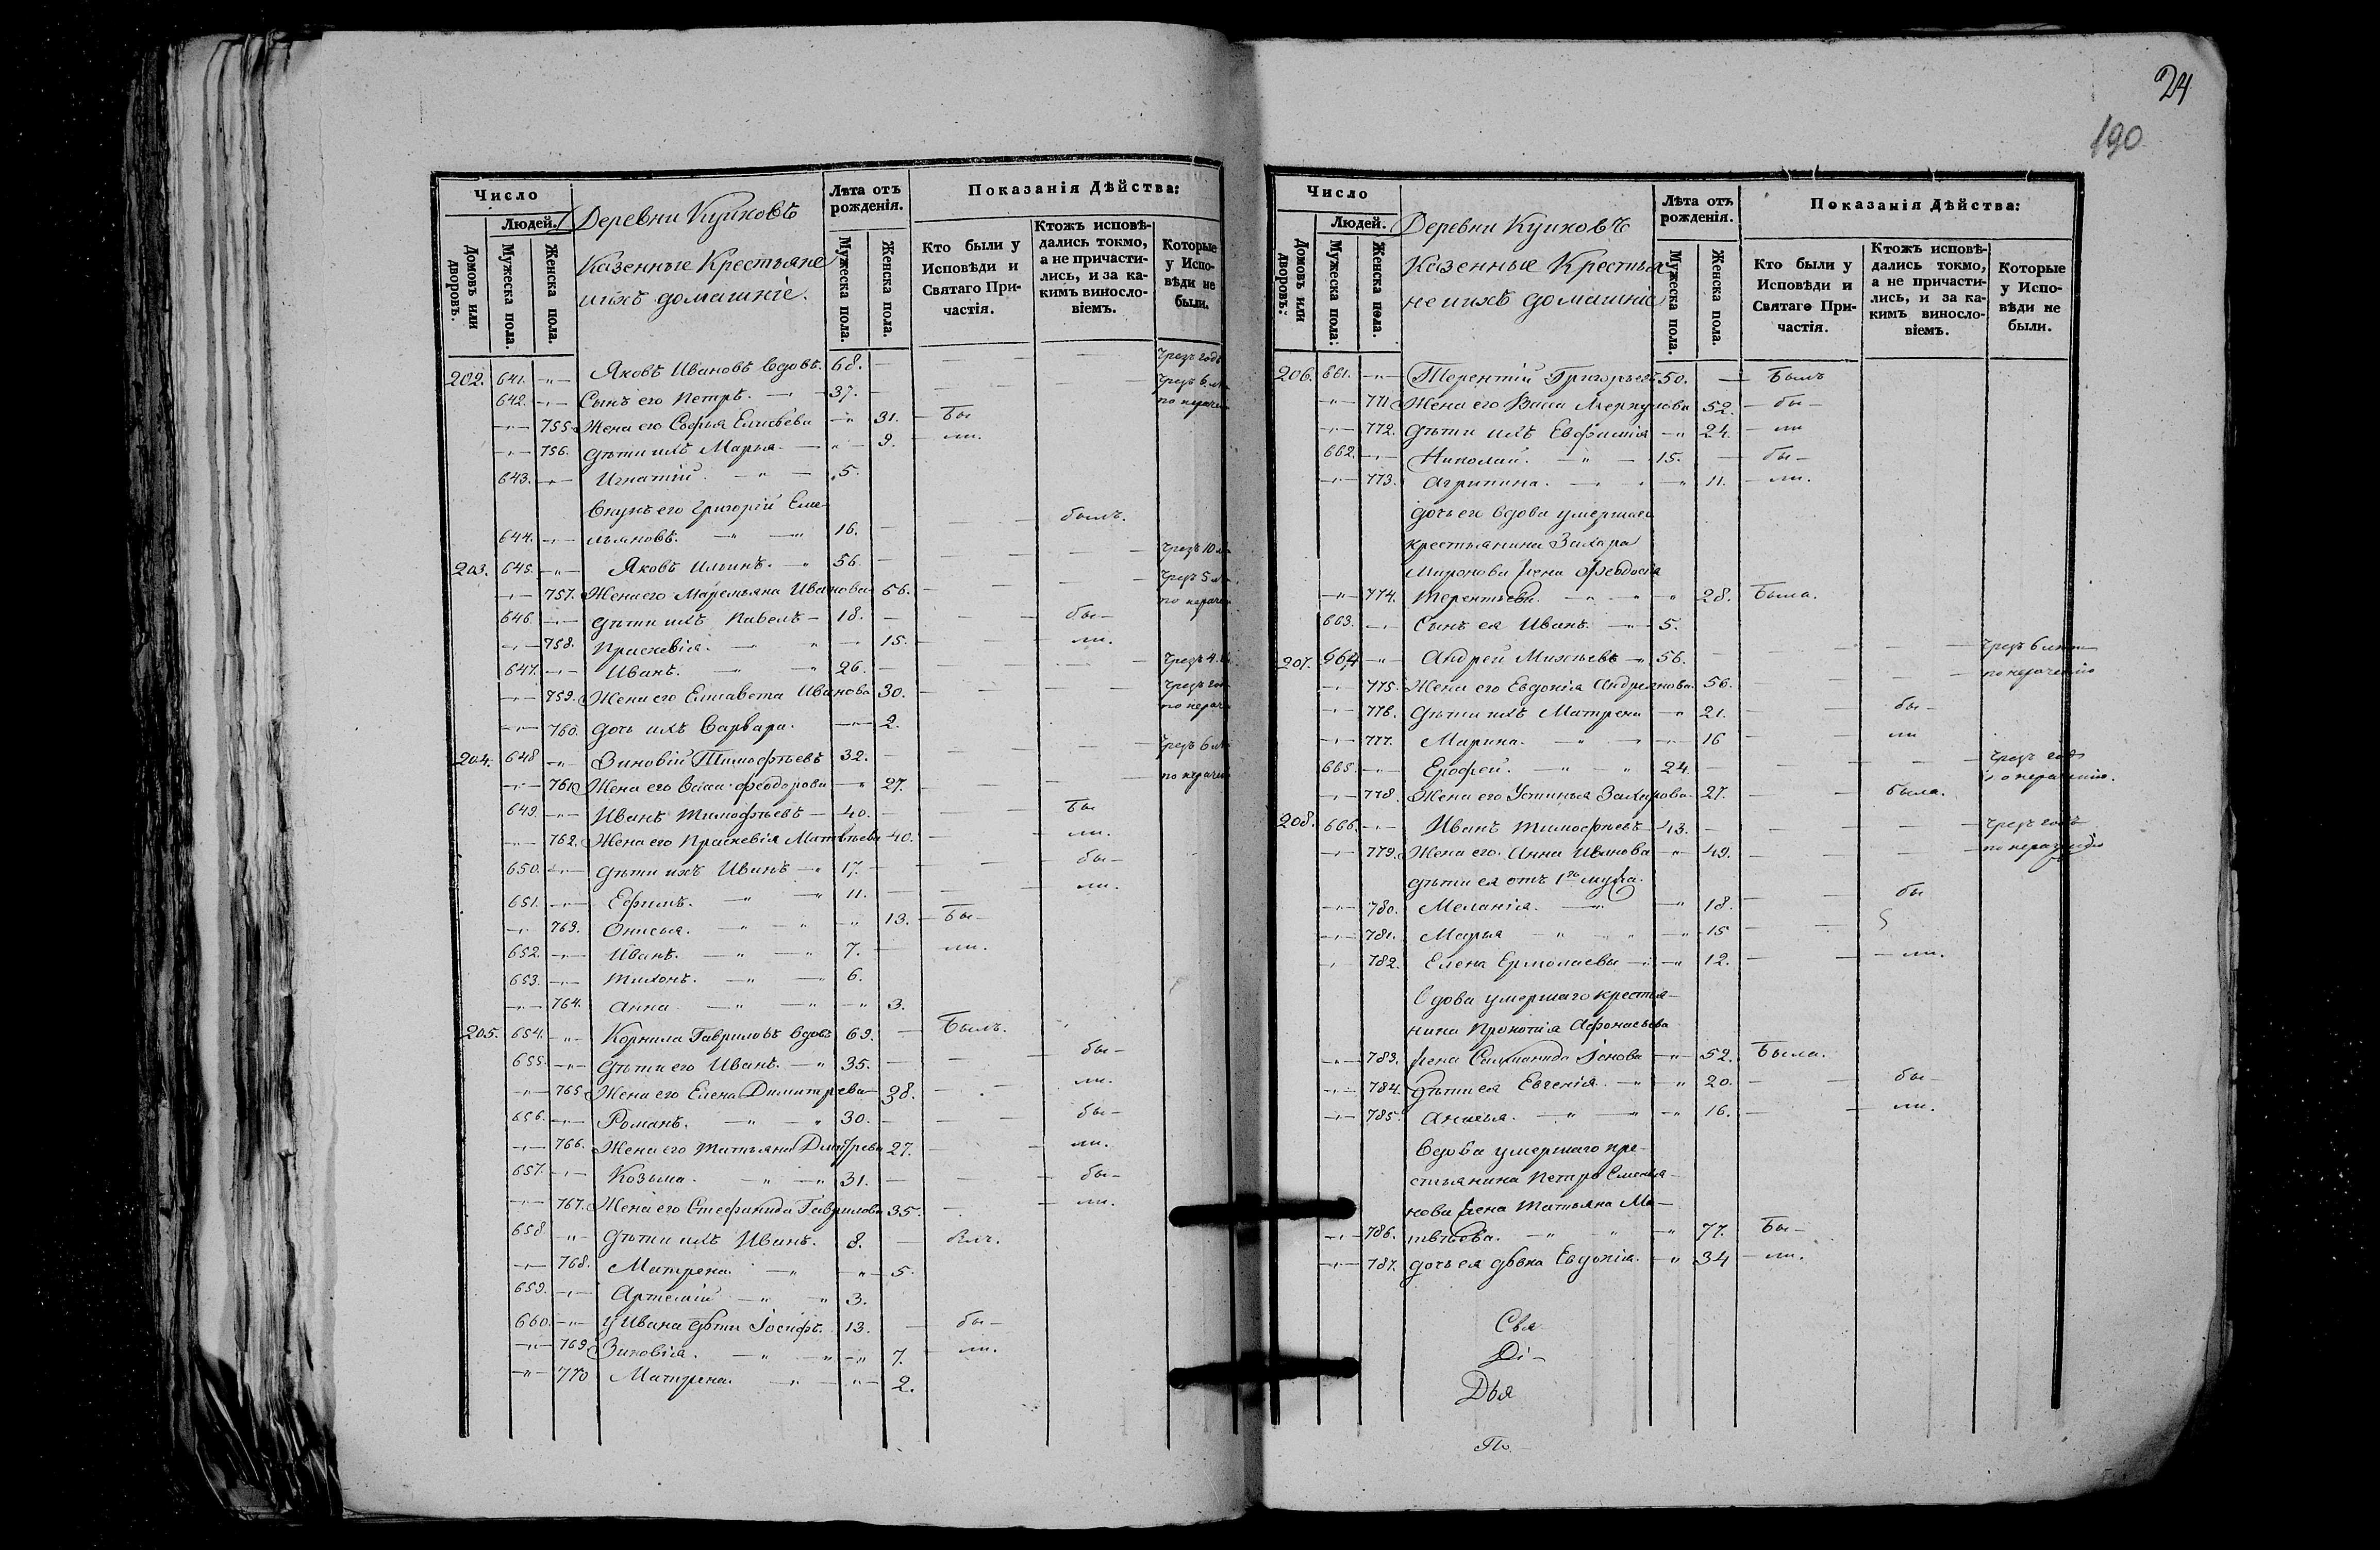 24
190
Число
Людей.
Домовъ или дворовъ.
Мужеска пола.
Женска пола.
Деревни
Казенные Крестьяне
и ихъ домашніе.
Лѣта отъ рожденія.
Мужеска пола.
Женска пола.
Показанія Дѣйства:
Кто были у Исповѣди и Святаго Причастія.
Ктожъ исповѣдались токмо, а не причастились, и за какимъ винословіемъ.
Которые у Исповѣди не были.
202. 641. Яковъ Ивановъ вдовъ. 68. — Чрезъ годъ
642. Сынъ его Петръ. 37. — Чрезъ 6 по нерачен
755. Жена его Софья Елисѣева 31. Бы
756. Дѣти ихъ Марья. 9. ли.
643. Игнатій. 5.
Внукъ его Григорій Еме-
644. льяновъ. 16. — былъ.
203. 645. Яковъ Ильинъ. 56. — Чрезъ 10
757. Жена его Маремьяна Иванова 56. — Чрезъ 5 по нерачен
646. Дѣти ихъ Павелъ 18. — бы-
758. Праскевія. 15. — ли.
647. Иванъ. 26. — Чрезъ 4.
759. Жена его Елисавета Иванова 30. — Чрезъ год по нерач
760. Дочь ихъ Варвара. 2.
204. 648 Зиновій Тимофѣевъ 32. — Чрезъ 6
761. Жена его Васса Феодорова 27. — по нерачен
649. Иванъ Тимофѣевъ 40. — Бы
762. Жена его Праскевія Матвѣева 40. — ли.
650. Дѣти ихъ Иванъ 17. — бы-
651. Ефимъ. 11. — ли.
763. Онисья. 13. Бы-
652. Иванъ. 7. — ли.
653. Тихонъ. 6.
764. Анна 3.
205. 654. Корнила Гавриловъ вдовъ 69. — Былъ.
655. Дѣти его Иванъ. 35. — бы-
765. Жена его Елена Димитрева 38. — ли.
656. Романъ. 30. — бы-
766. Жена его Татьяна Дмитрева 27. — ли.
657. Козьма. 31. — бы-
767. Жена его Стефанида Гаврилова 35. — ли.
658 Дѣти ихъ Иванъ. 8.
768. Матрена. 5.
659. Артемій 3.
660. У Ивана дѣти Іосифъ. 13. — бы-
769 Зиновія. 7. ли.
770 Матрена. 2.
Число
Людей.
Домовъ или дворовъ.
Мужеска пола.
Женска пола.
Деревни
Казенные Крестья-
не и ихъ домашніе
Лѣта отъ рожденія.
Мужеска пола.
Женска пола.
Показанія Дѣйства:
Кто были у Исповѣди и Святаго Причастія.
Ктожъ исповѣдались токмо, а не причастились, и за какимъ винословіемъ.
Которые у Исповѣди не были.
206. 661. Терентій Григорьевъ 50. — Былъ
771 Жена его Васса Меркулова 52. — бы-
772. Дѣти ихъ Евфимія 24. — ли
662. Николай. 15. — бы-
773. Агрипина. 11. — ли.
Дочь его вдова умершаго
крестьянина Захара
Миронова жена Феодосія
774. Терентьева. 28. Была.
663. Сынъ ея Иванъ. 5.
207. 664 Андрей Михѣевъ 56. — Чрезъ 6
775. Жена его Евдокія Андреянова. 56. — по нераченію
776. Дѣти ихъ Матрена 21. — бы-
777. Марина. 16 — ли
665. Ерофей. 24. — Чрезъ годъ по нераченію.
778. Жена его Устинья Захарова 27. — была.
208. 666. Иванъ Тимофѣевъ 43. — Чрезъ годъ
779. Жена его Анна Иванова 49. — по нераченію
Дѣти ея отъ 1го мужа.
780. Меланія. 18. — бы
781. Марья 15
782. Елена Ермолаевы 12. — ли.
Вдова умершаго крестья-
нина Прокопія Афонасьева
783. жена Саломанида Іонова 52. Была.
784. Дѣти ея Евгенія. 20. — бы-
785. Анисья. 16. — ли.
Вдова умершаго кре-
стьянина Петра Емелья-
нова жена Татьяна Ма-
786. твѣева. 77. Бы-
787. Дочь ея дѣвка Евдокія. 34 — ли.
Свя-
Ді-
Дья
По